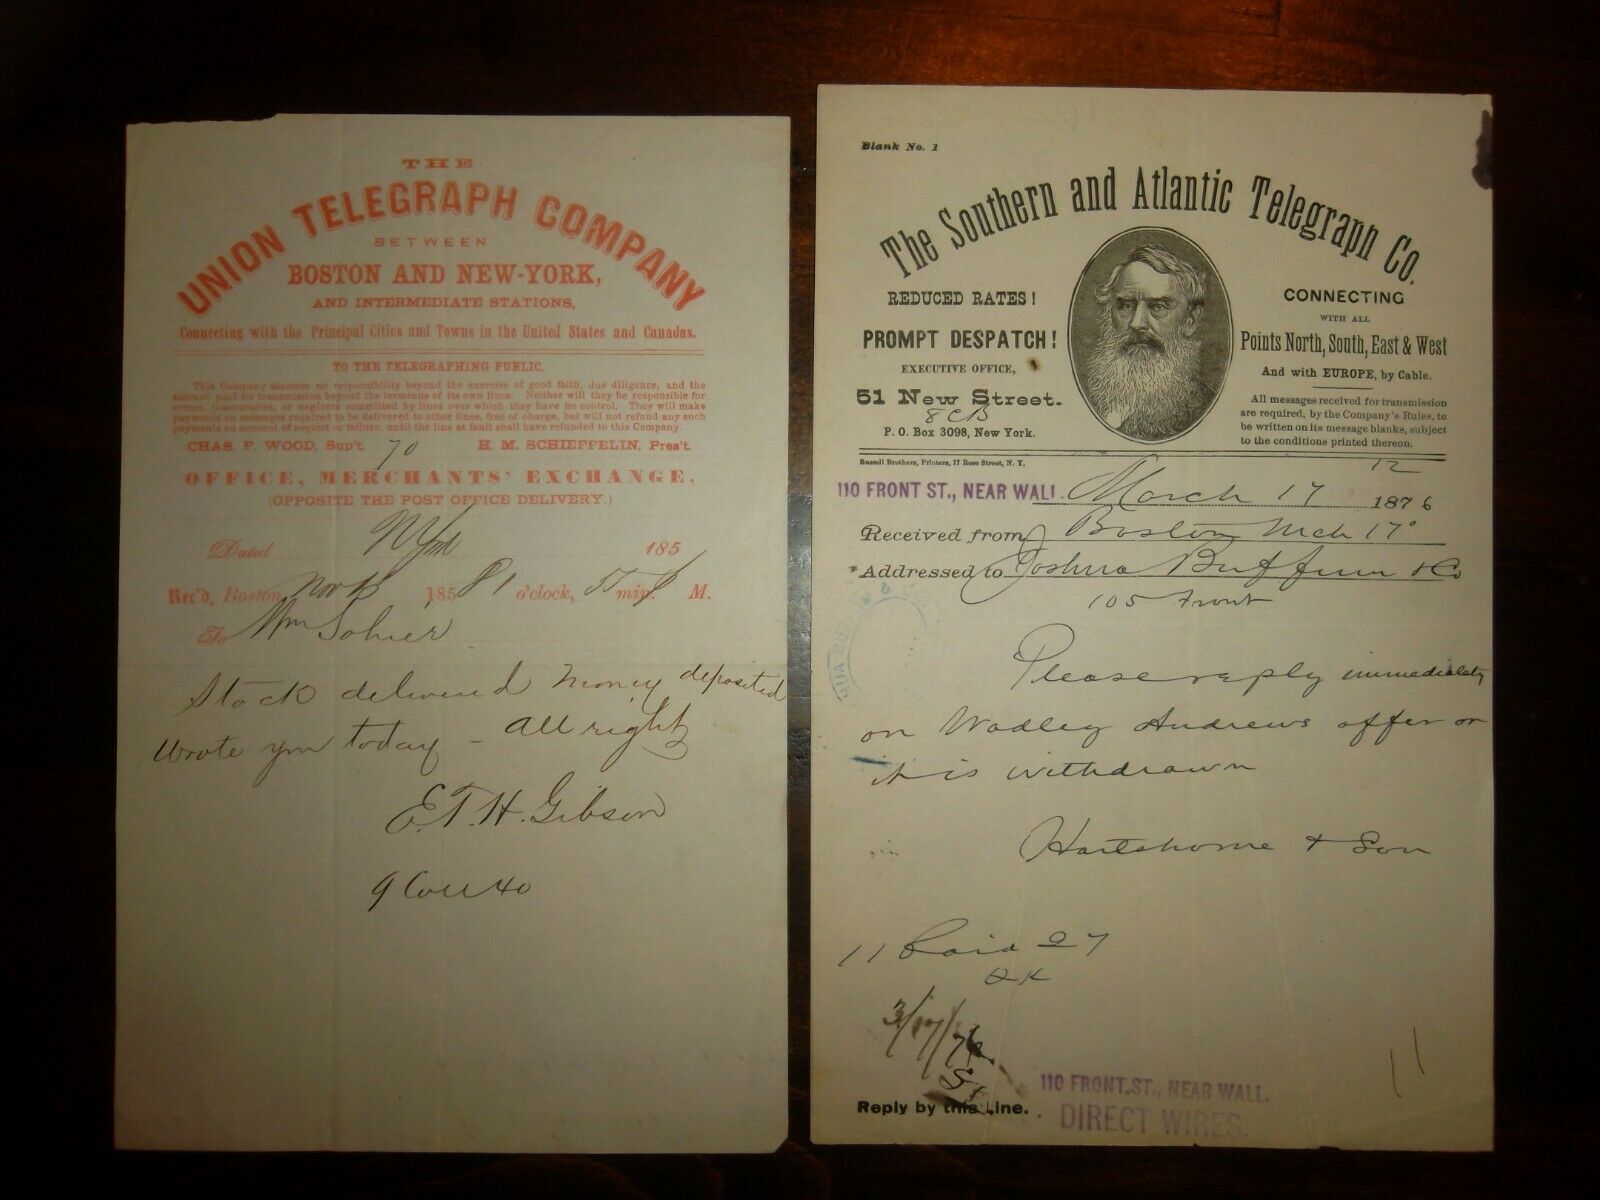 THE
UNION TELEGRAPH COMPANY
BETWEEN
BOSTON AND NEW-YORK,
AND INTERMEDIATE STATIONS,
Connecting with the Principal Cities and Towns in the United States and Canadas.
TO THE TELEGRAPHING PUBLIC.
This Company assumes no responsibility beyond the exercise of good faith, due diligence, and the
amount paid for transmission beyond the terminus of its own lines. Neither will they be responsible for
errors, inaccuracies, or neglects committed by lines over which they have no control. They will make
payments on messages required to be delivered to other lines, free of charge, but will not refund any such
payments on account of neglect or failure, until the line at fault shall have refunded to this Company.
CHAS. F. WOOD, Sup't. 70 H. M. SCHIEFFELIN, Pres't.
OFFICE, MERCHANTS' EXCHANGE,
(OPPOSITE THE POST OFFICE DELIVERY.)
Dated N York 185
Rec'd, Boston Nov 13 1858 1 o'clock, 55 min. P M.
To Wm Sohier
Stock delivered money deposited
Wrote you today - All right
E. T. H. Gibson
9 40
Blank No. 1
The Southern and Atlantic Telegraph Co.
REDUCED RATES!
PROMPT DESPATCH!
EXECUTIVE OFFICE,
51 New Street.
8 CB
P. O. Box 3098, New York.
CONNECTING
WITH ALL
Points North, South, East & West
And with EUROPE, by Cable.
All messages received for transmission
are required, by the Company's Rules, to
be written on its message blanks, subject
to the conditions printed thereon.
Russell Brothers, Printers, 17 Rose Street, N. Y.
12
110 FRONT ST., NEAR WALL. March 17 1876
Received from Boston Mch 17
Addressed to Joshua Buffum & Co
105 Front
Please reply immediately
on Wadley Andrews offer or
it is withdrawn
Hartshorne & Son
11 Paid 27
3/17/76
11
110 FRONT ST., NEAR WALL.
Reply by this Line.
DIRECT WIRES.